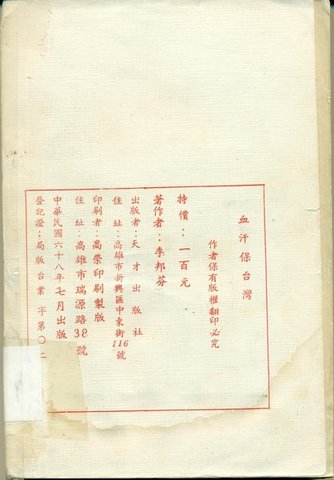 血汗保台灣
作者保有版權翻印必究
特價：一百元
著作者：李邦芬
出版者：天才出版社
住　址：高雄市新興區中東街116號
印刷者：高榮印刷製版
住　址：高雄市瑞源路38號
中華民國六十八年七月出版
登記證：局版台業字第〇二